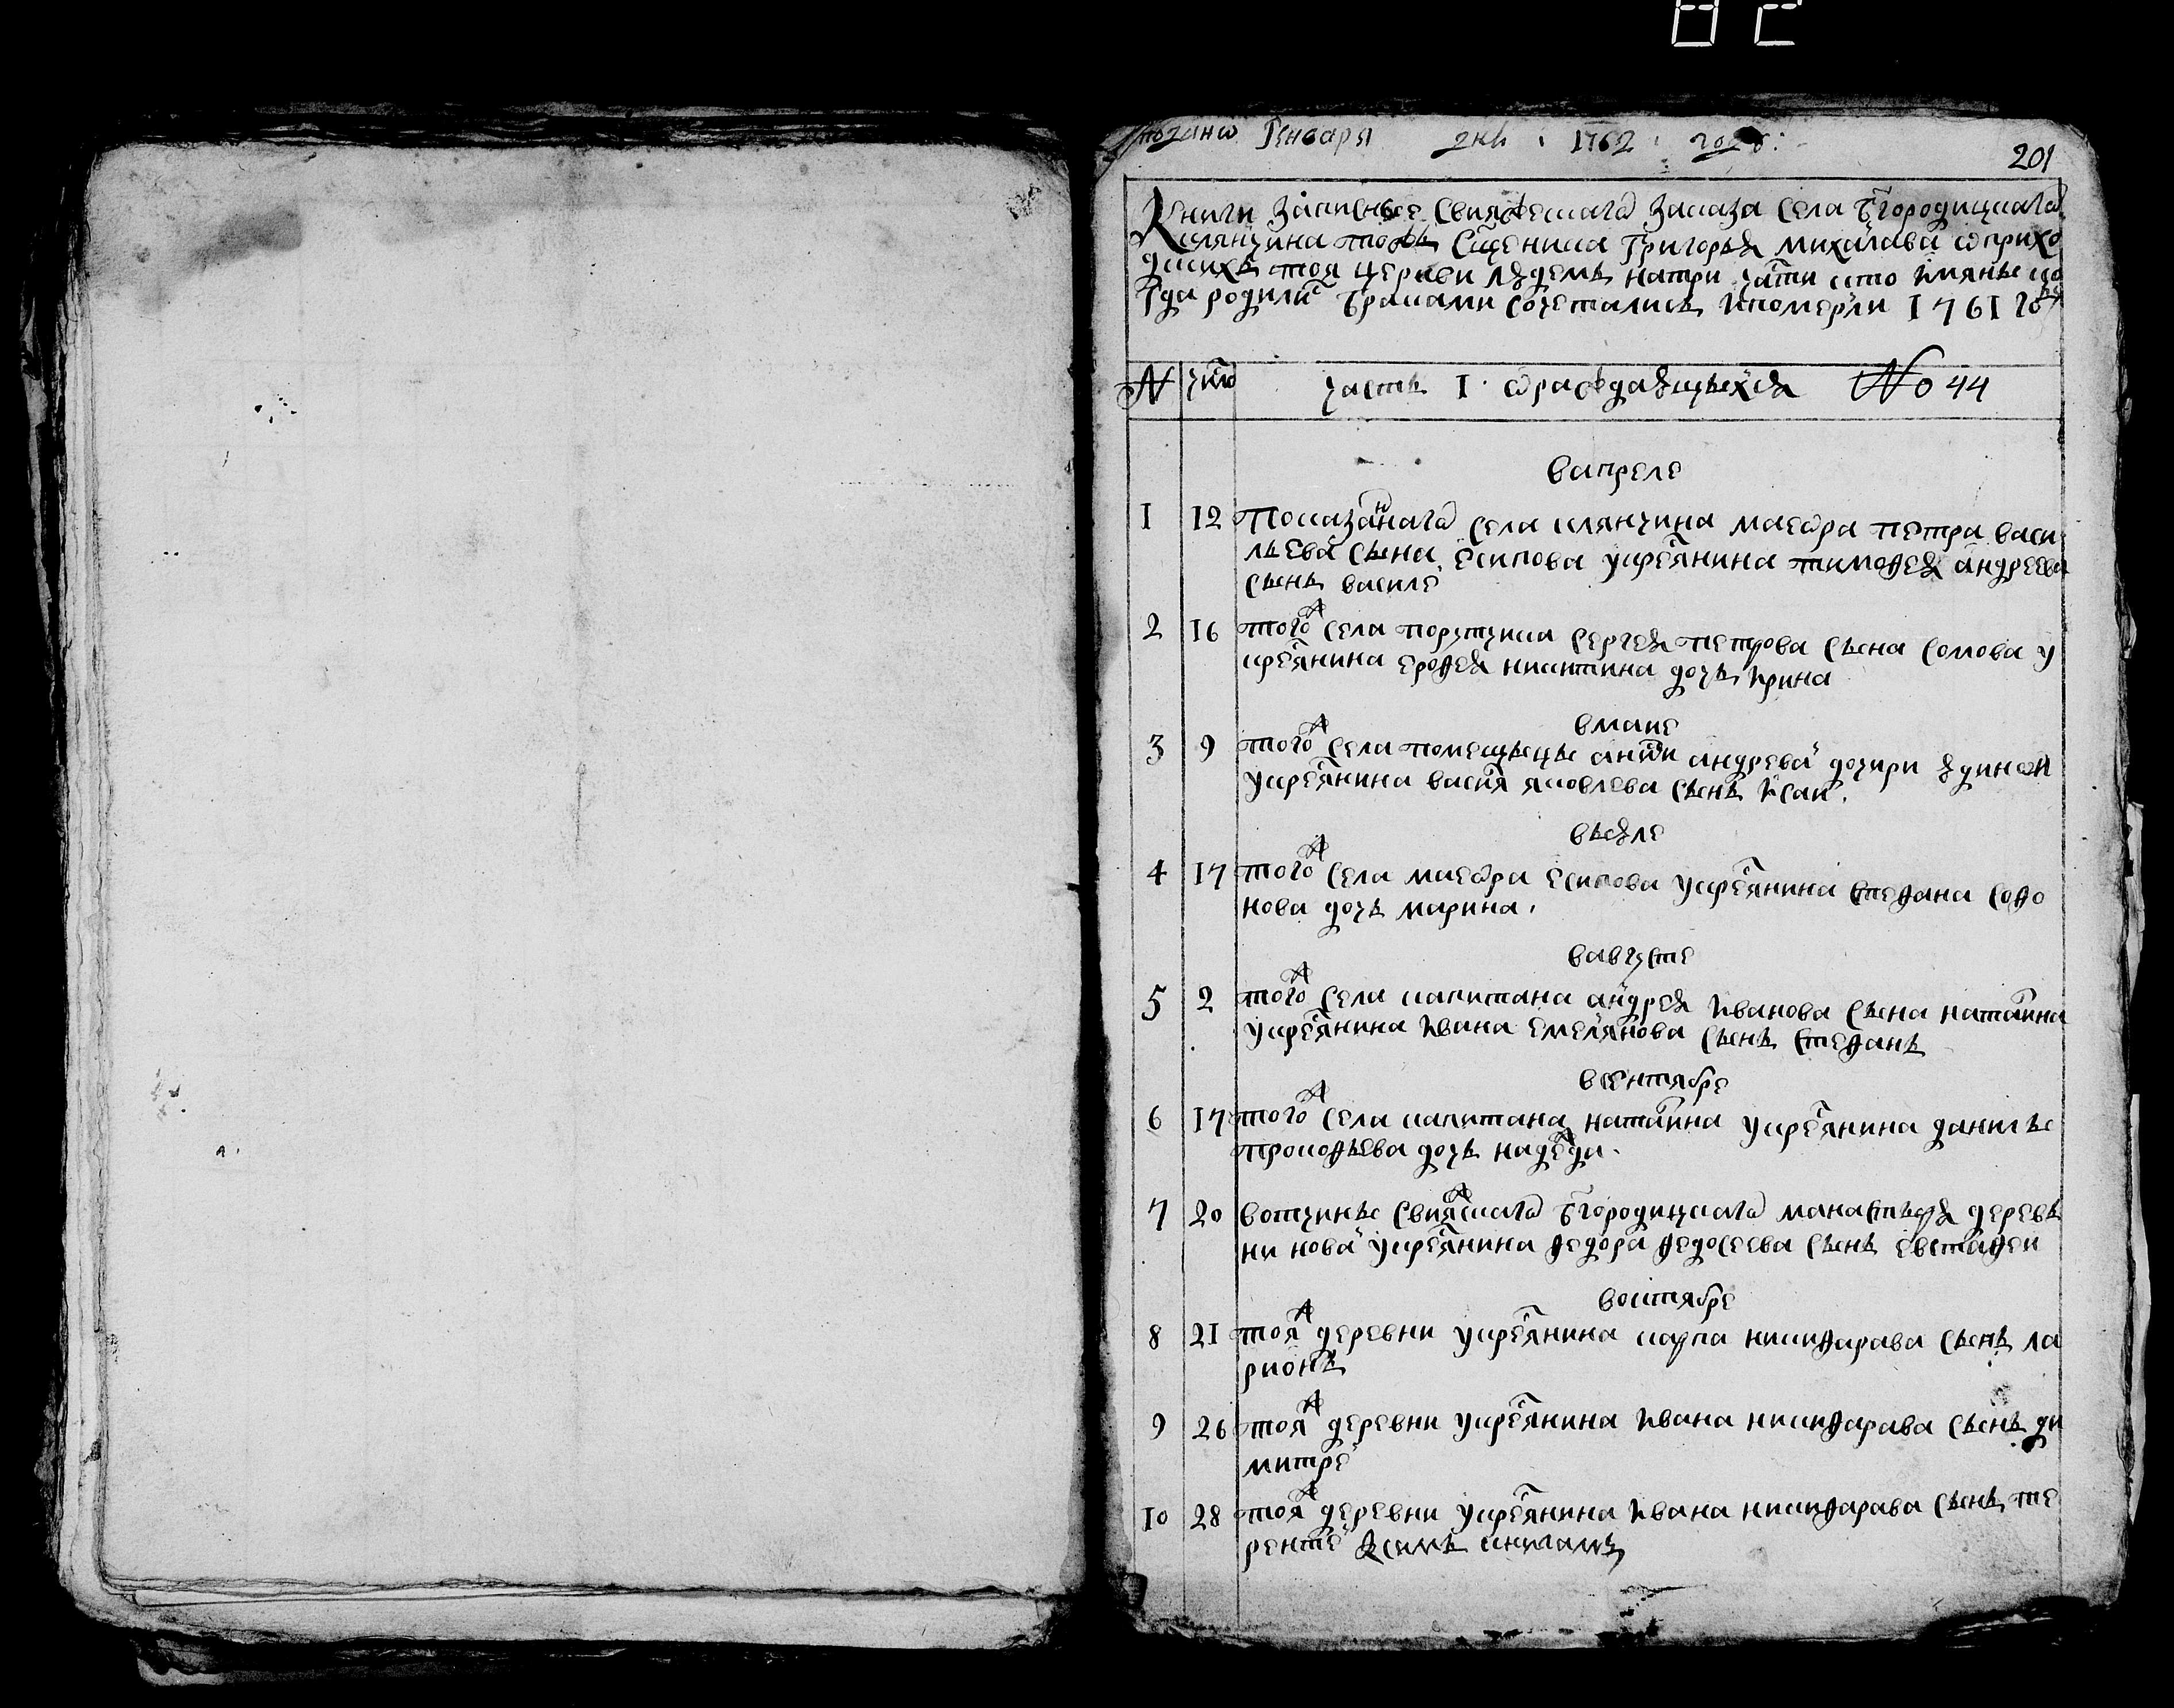 подано Генваря дня 1762 году
201
Книги записные Свияжскаго заказа села Бгородицкаго
Клянчина тожъ Сщеника Григорья Михайлава о прихо
дскихъ тоя церкви людемъ на три части кто имяны ко
гда родилис браками сочеталисъ и померли 1761 году
№ число часть 1 о раждающыхся № 44
в апреле
1 12 Показаннаго села клянчина маеора петра васи
льева сына есипова у кресянина тимофея андреева
сынъ василе
2 16 того ж села порутчика сергея петрова сына сомова у
кресянина ерофея никитина дочъ ирина
в маие
3 9 того ж села помещыцы анны андревай дочири юдиной
у кресянина васия яковлева сынъ исаи
в ыюле
4 17 того ж села маеора есипова у кресянина степана софо
нова дочъ марина
в августе
5 2 того ж села капитана андрея иванова сына наткина
у кресянина ивана емелянова сынъ степанъ
в сентябре
6 17 того ж села капитана наткина у кресянина данилы
прокофьева дочъ надежда
7 20 вотчины свияжскаго бгородицкаго манастыря деревъ
ни новай у кресянина федора федосеева сынъ евстафеи
в октябре
8 21 тоя ж деревни у кресянина карпа никифарава сынъ ла
рионъ
9 26 тоя ж деревни у кресянина ивана никифарава сынъ ди
митре
10 28 тоя ж деревни у кресянина ивана никифарава сынъ те
ренте к симъ книгамъ